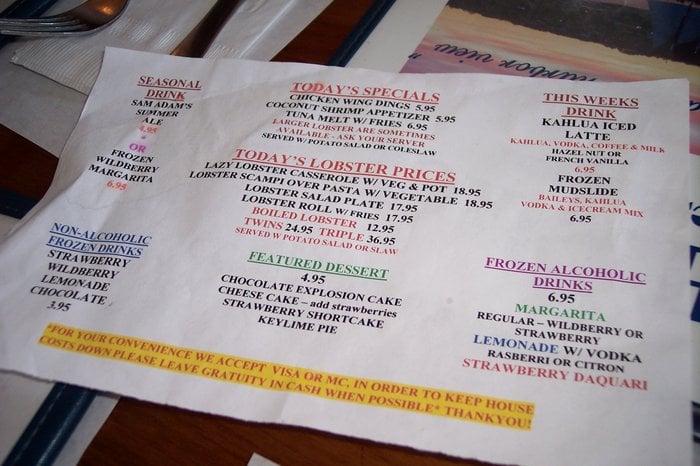 harbor view
SEASONAL
DRINK
SAM ADAM'S
SUMMER
ALE
4.95
*
OR
FROZEN
WILDBERRY
MARGARITA
6.95
NON-ALCOHOLIC
FROZEN DRINKS
STRAWBERRY
WILDBERRY
LEMONADE
CHOCOLATE
3.95
TODAY'S SPECIALS
CHICKEN WING DINGS 5.95
COCONUT SHRIMP APPETIZER 5.95
TUNA MELT W/ FRIES 6.95
LARGER LOBSTER ARE SOMETIMES
AVAILABLE - ASK YOUR SERVER
SERVED W/ POTATO SALAD OR COLESLAW
TODAY'S LOBSTER PRICES
LAZY LOBSTER CASSEROLE W/ VEG & POT 18.95
LOBSTER SCAMPI OVER PASTA W/ VEGETABLE 18.95
LOBSTER SALAD PLATE 17.95
LOBSTER ROLL W/ FRIES 17.95
BOILED LOBSTER 12.95
TWINS 24.95 TRIPLE 36.95
SERVED W POTATO SALAD OR SLAW
FEATURED DESSERT
4.95
CHOCOLATE EXPLOSION CAKE
CHEESE CAKE – add strawberries
STRAWBERRY SHORTCAKE
KEYLIME PIE
THIS WEEKS
DRINK
KAHLUA ICED
LATTE
KAHLUA, VODKA, COFFEE & MILK
HAZEL NUT OR
FRENCH VANILLA
6.95
FROZEN
MUDSLIDE
BAILEYS, KAHLUA
VODKA & ICECREAM MIX
6.95
FROZEN ALCOHOLIC
DRINKS
6.95
MARGARITA
REGULAR – WILDBERRY OR
STRAWBERRY
LEMONADE W/ VODKA
RASBERRI OR CITRON
STRAWBERRY DAQUARI
*FOR YOUR CONVENIENCE WE ACCEPT VISA OR MC, IN ORDER TO KEEP HOUSE
COSTS DOWN PLEASE LEAVE GRATUITY IN CASH WHEN POSSIBLE* THANKYOU!